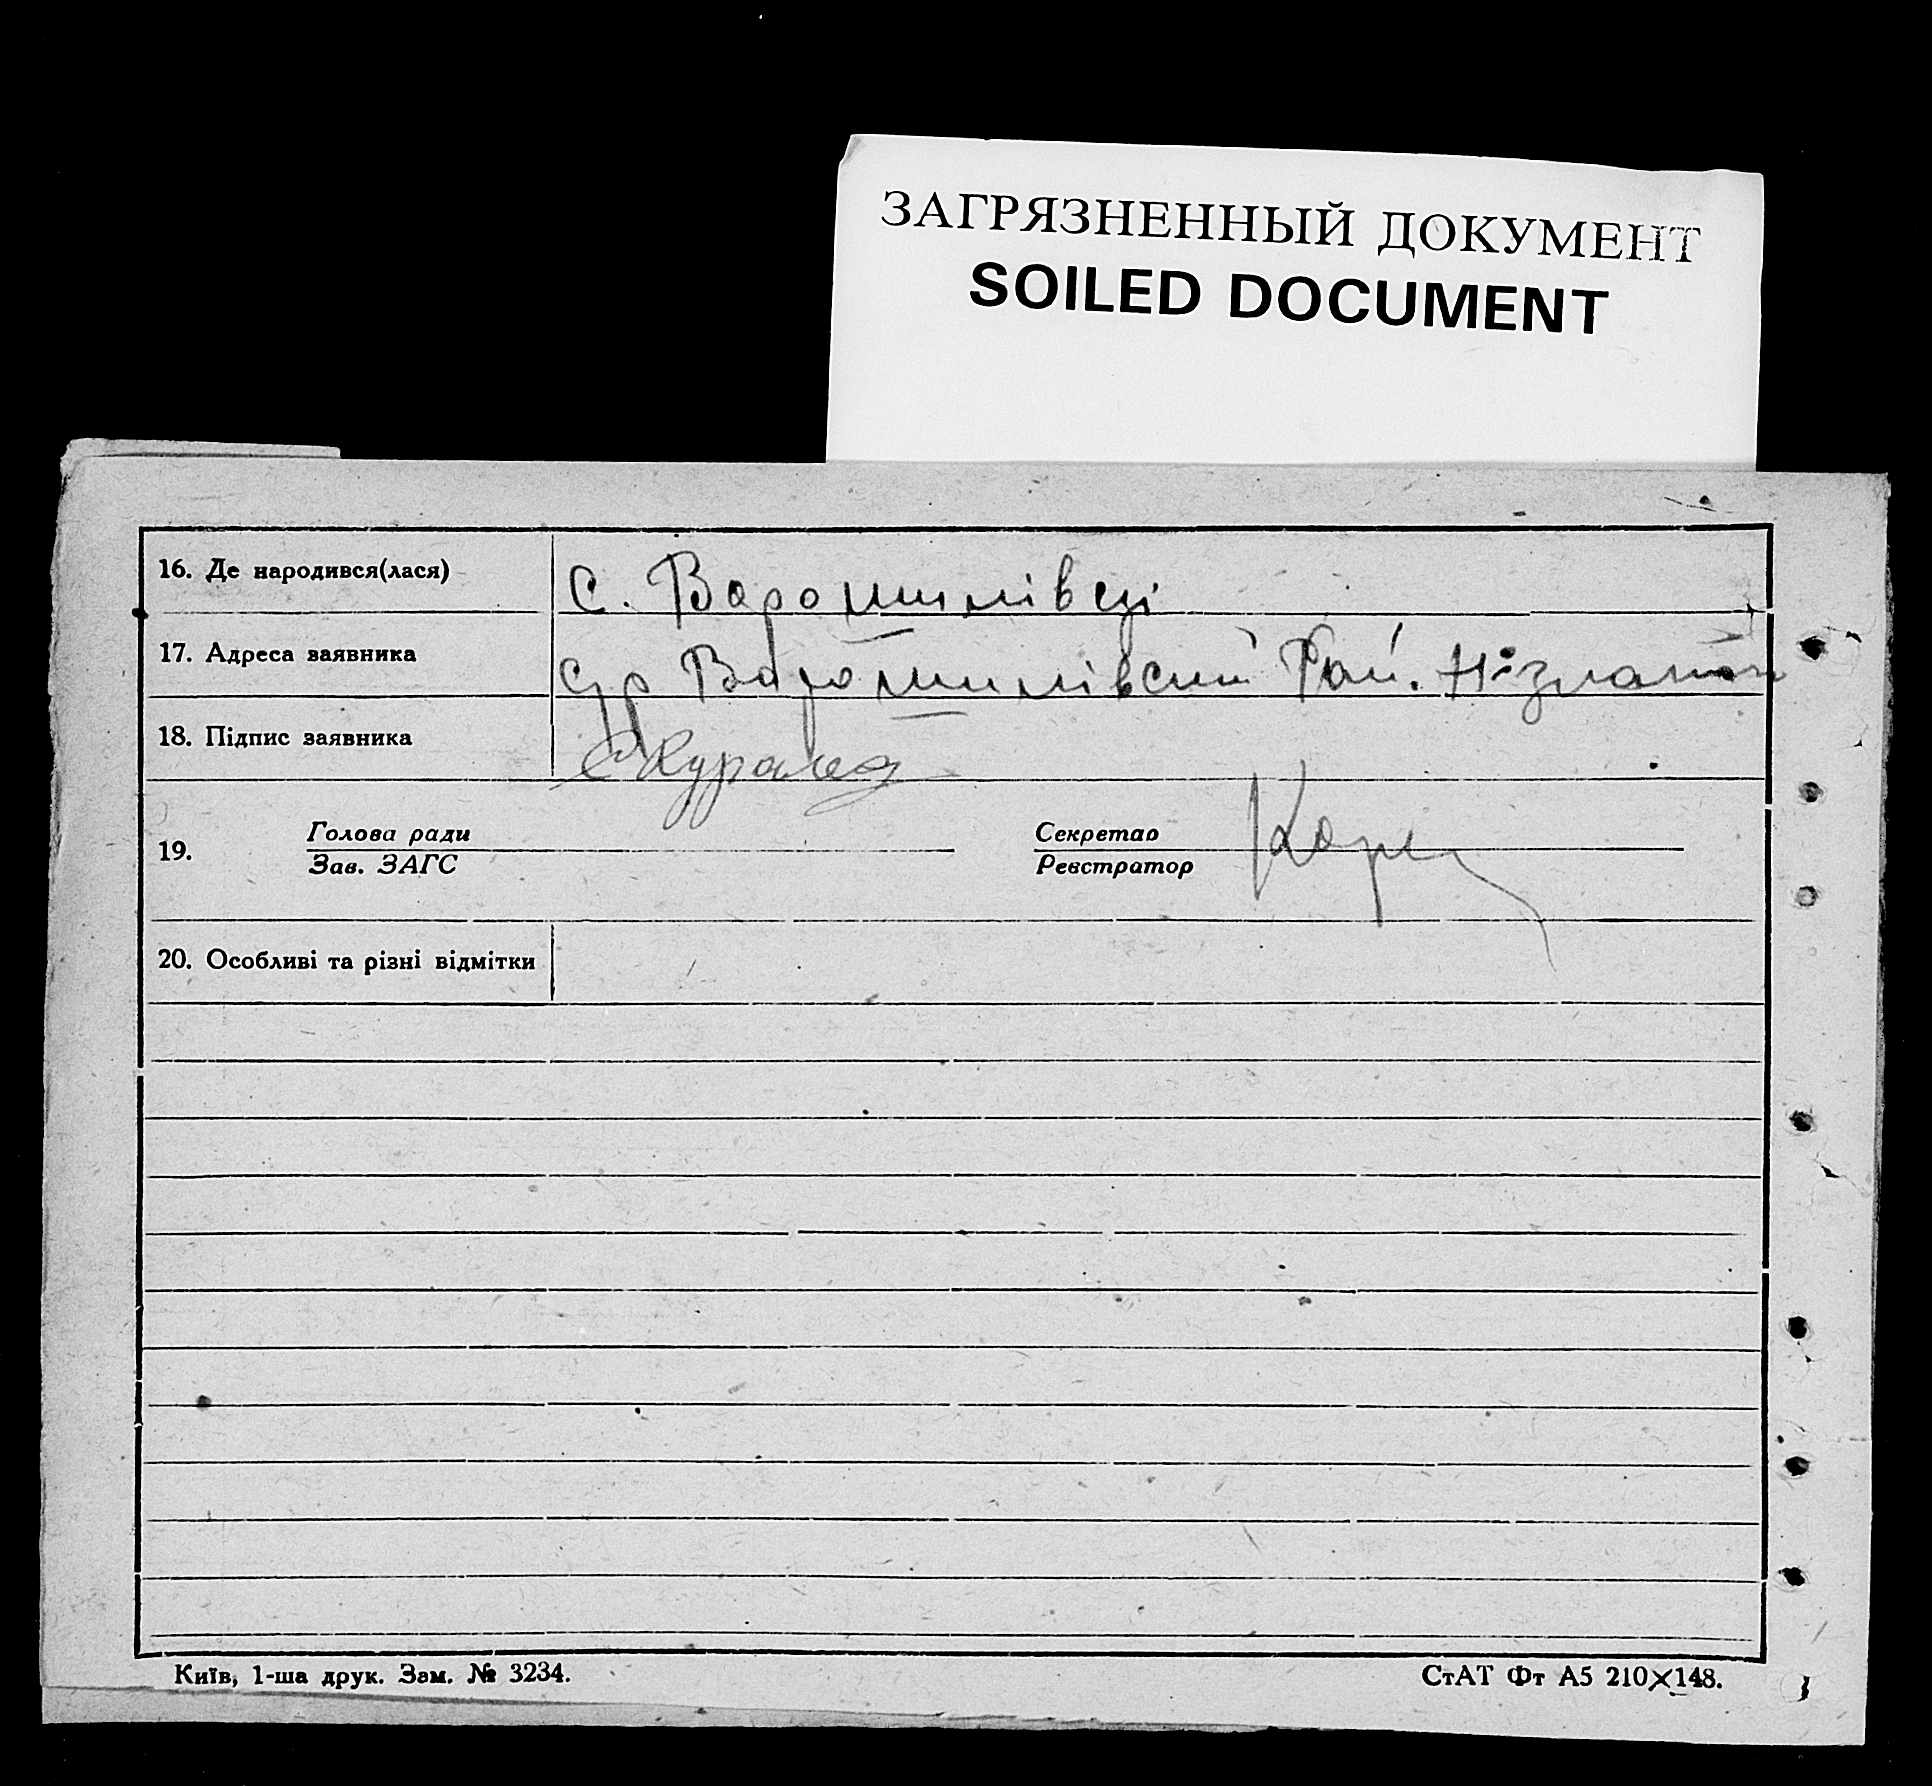 ЗАГРЯЗНЕННЫЙ ДОКУМЕНТ
SOILED DOCUMENT
16. Де народився(лася) с. Ворошилівці
17. Адреса заявника Ворошилівський Рай.
18. Підпис заявника
19. Голова ради
Зав. ЗАГС
Секретар
Реєстратор
20. Особливі та різні відмітки
Київ, 1-ша друк. Зам. № 3234.
СтАТ Фт А5 210×148.